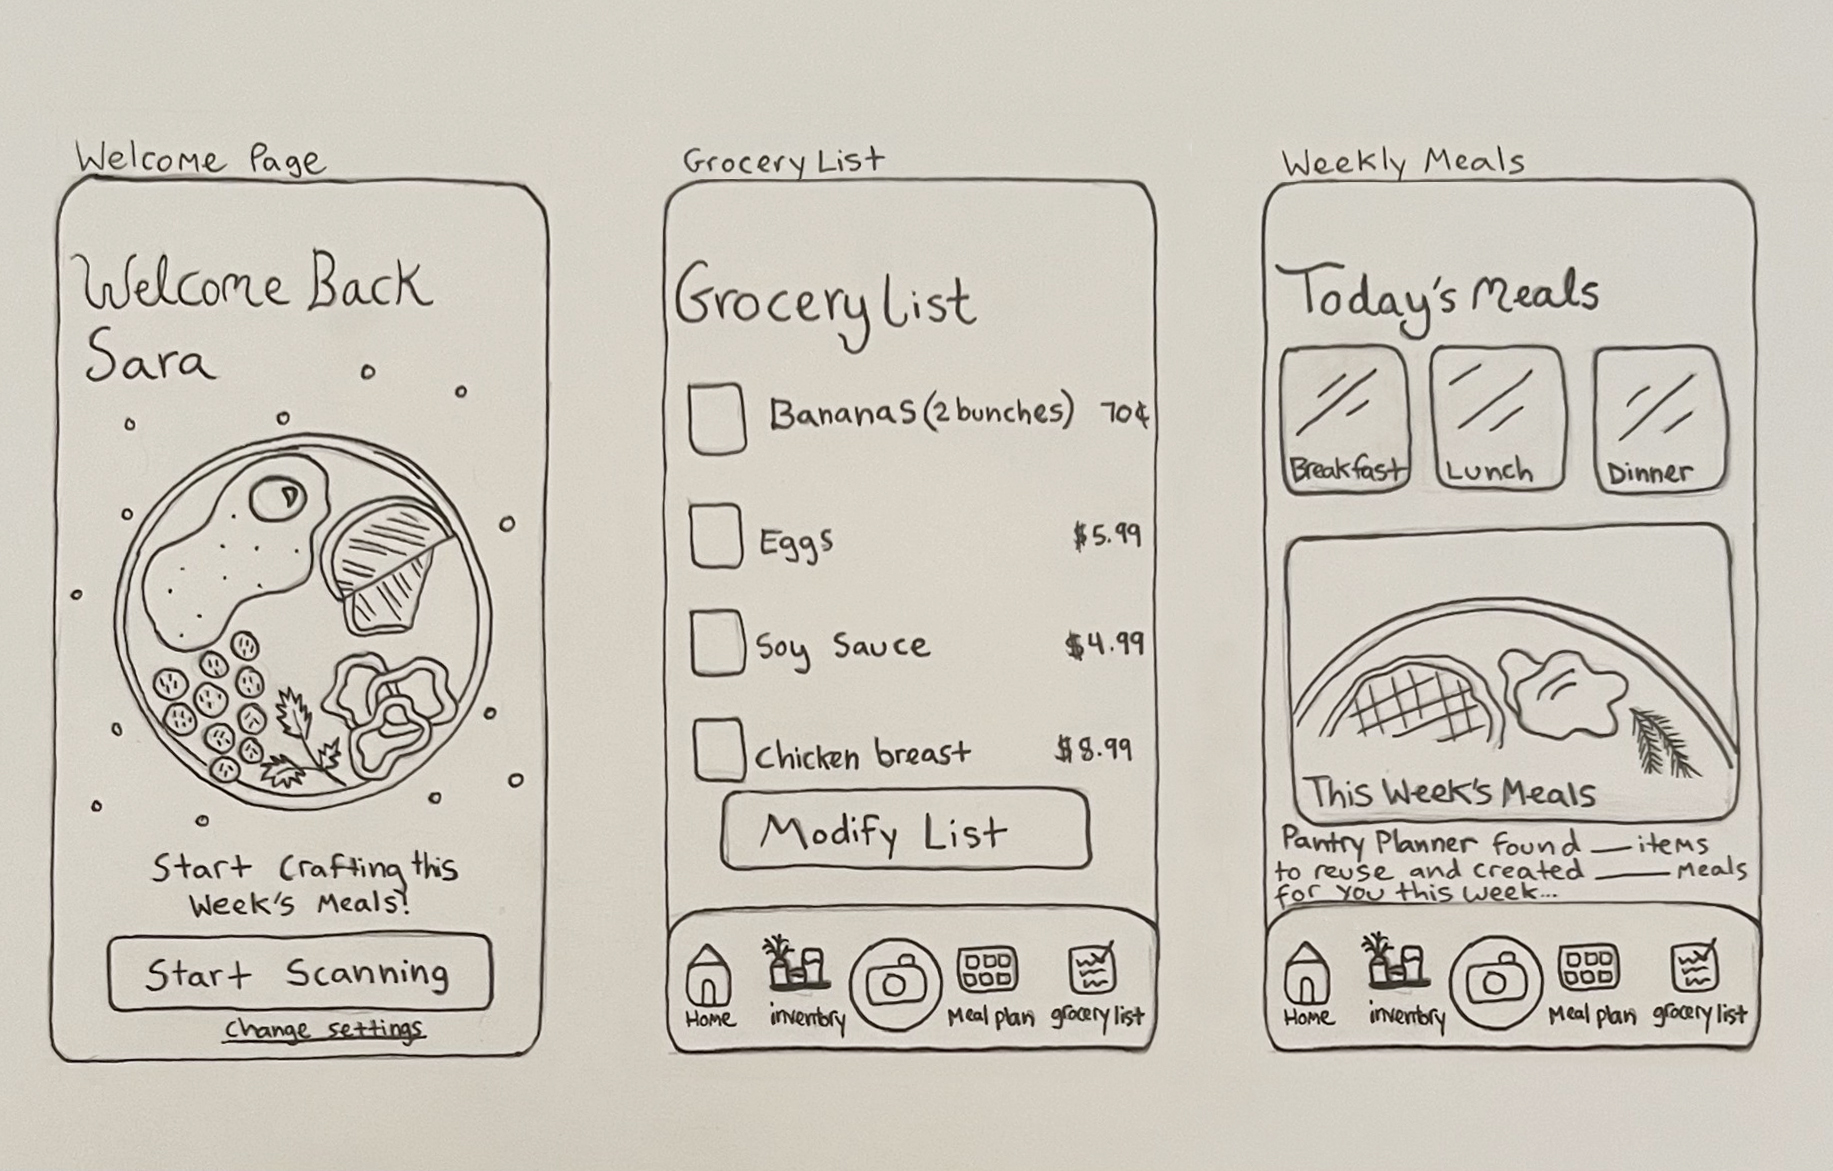 Welcome Page
Welcome Back
Sara
Start Crafting this
Week's Meals!
Start Scanning
Change settings
Grocery List
Grocery List
Bananas (2 bunches) 70¢
Eggs $5.99
Soy Sauce $4.99
Chicken breast $8.99
Modify List
Home inventory Meal plan grocery list
Weekly Meals
Today's Meals
Breakfast Lunch Dinner
This Week's Meals
Pantry Planner found __ items
to reuse and created ___ Meals
for you this week...
Home inventory Meal plan grocery list